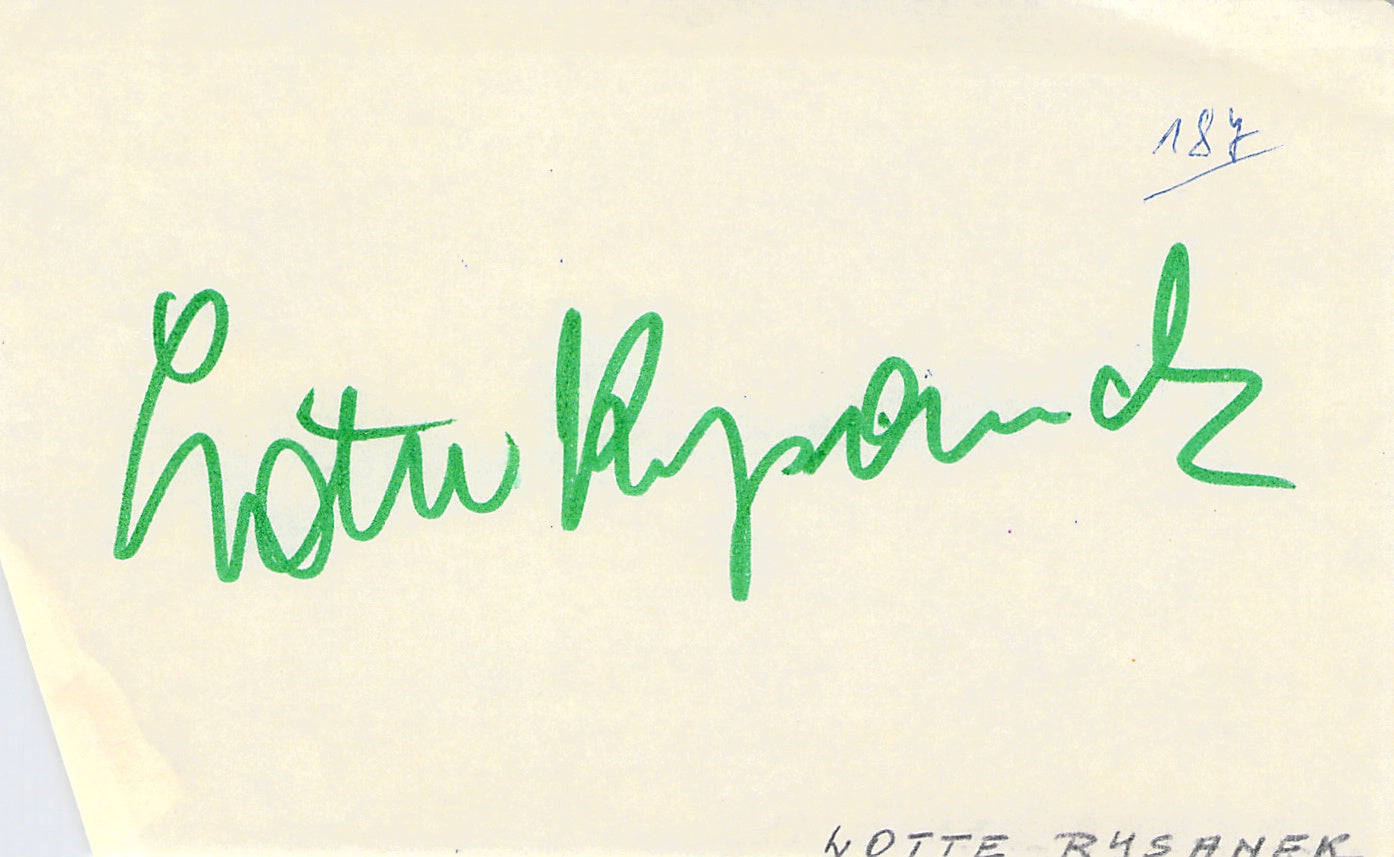 187
Lotte Rysanek
LOTTE RYSANEK